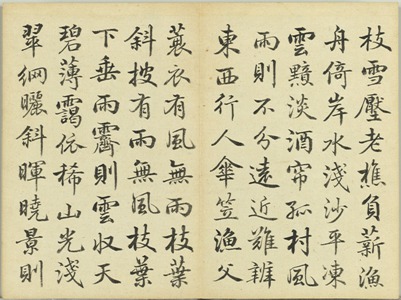 枝雪壓老樵負薪漁
舟倚岸水淺沙平凍
雲黯淡酒帘孤村風
雨則不分遠近難辨
東西行人傘笠漁父
蓑衣有風無雨枝葉
斜披有雨無風枝葉
下垂雨霽則雲收天
碧薄靄依稀山光淺
翠網曬斜暉曉景則